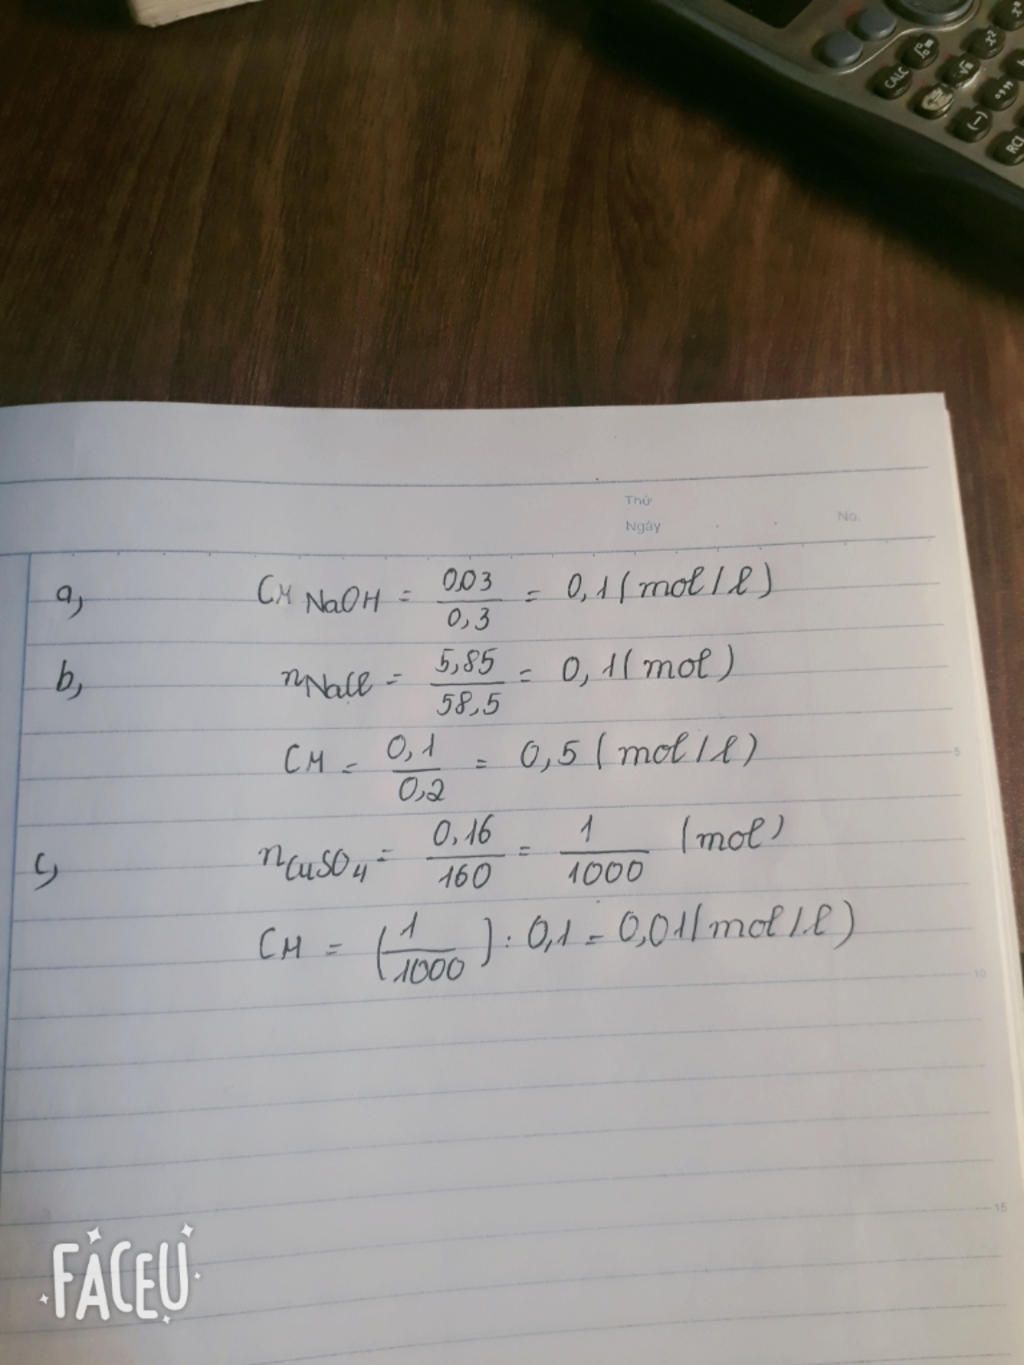 CALC
(-)
RCL
Thứ
Ngày
No.
a, CM NaOH = 0,03/0,3 = 0,1 (mol/l)
b, nNaCl = 5,85/58,5 = 0,1 (mol)
CM = 0,1/0,2 = 0,5 (mol/l)
5
c, nCuSO4 = 0,16/160 = 1/1000 (mol)
CM = (1/1000) : 0,1 = 0,01 (mol/l)
10
15
FACEU